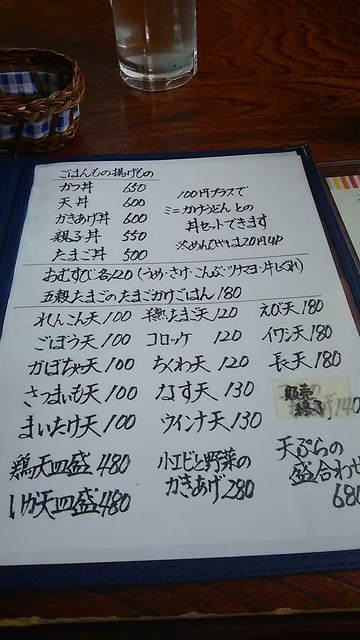 ごはんもの揚げもの
カツ丼 650
天丼 600
かきあげ丼 600
親子丼 550
たまご丼 500
100円プラスで
ミニかけうどんとの
丼セットできます
おむすび各120 (うめ・さけ・こんぶ・ツナマヨ・牛しぐれ)
五穀たまごのたまごかけごはん 180
れんこん天 100 半熟たまご天 120 えび天 180
ごぼう天 100 コロッケ 120 イワシ天 180
かぼちゃ天 100 ちくわ天 120 長天 180
さつまいも天 100 なす天 130 販売終了 140
まいたけ天 100 ウインナ天 130
鶏天皿盛 480 小エビと野菜の
かきあげ 280
天ぷらの
盛合わせ
680
いか天皿盛 480